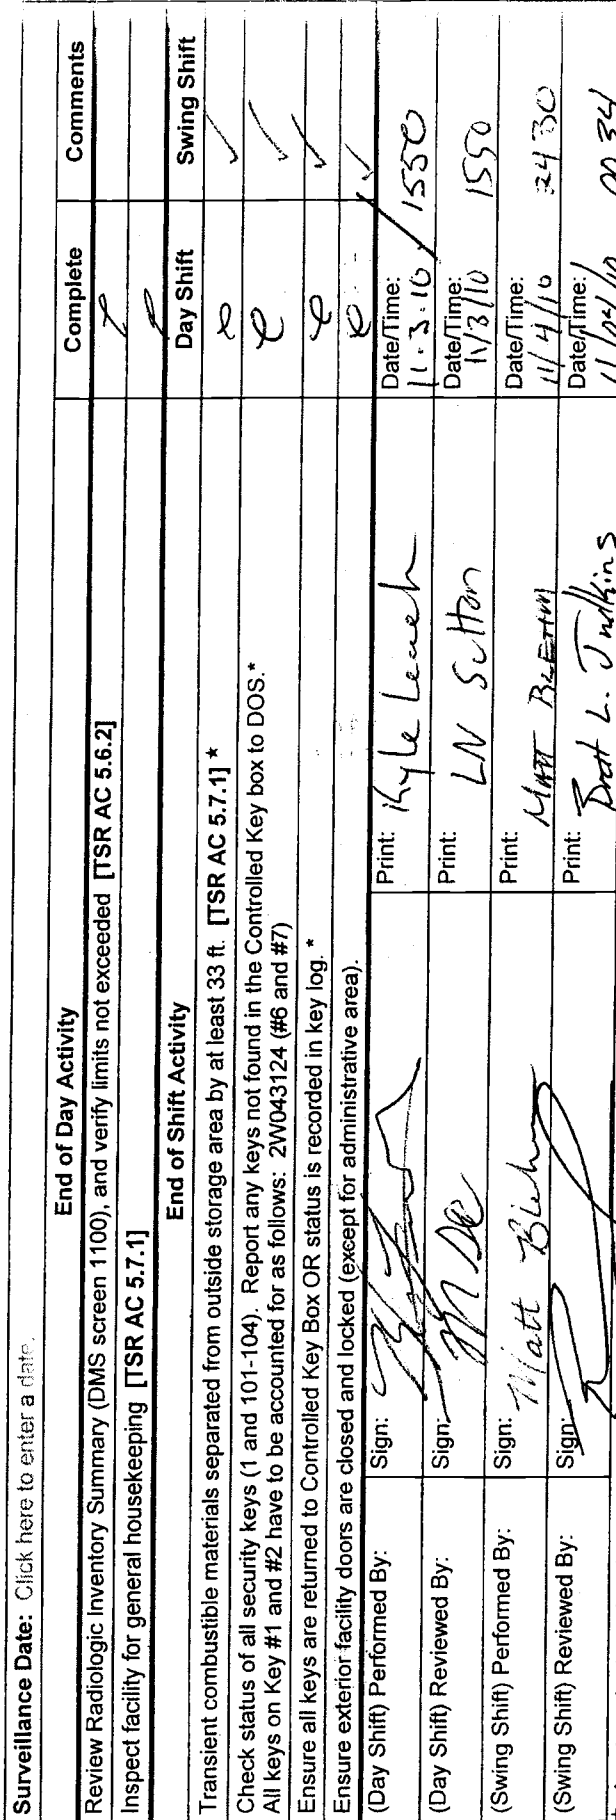 Surveillance Date: Click here to enter a date.
End of Day Activity Complete Comments
Review Radiologic Inventory Summary (DMS screen 1100), and verify limits not exceeded [TSR AC 5.6.2]
Inspect facility for general housekeeping [TSR AC 5.7.1]
End of Shift Activity Day Shift Swing Shift
Transient combustible materials separated from outside storage area by at least 33 ft. [TSR AC 5.7.1] * ✓
Check status of all security keys (1 and 101-104). Report any keys not found in the Controlled Key box to DOS.* ✓
All keys on Key #1 and #2 have to be accounted for as follows: 2W043124 (#6 and #7)
Ensure all keys are returned to Controlled Key Box OR status is recorded in key log. * ✓
Ensure exterior facility doors are closed and locked (except for administrative area). ✓
(Day Shift) Performed By: Sign: Print: Kyle Leach Date/Time: 11-3-10 / 1550
(Day Shift) Reviewed By: Sign: Print: LN Sutton Date/Time: 11/3/10 1550
(Swing Shift) Performed By: Sign: Matt Print: Matt Date/Time: 11/4/10 2430
(Swing Shift) Reviewed By: Sign: Print: L. Judkins Date/Time: 11/04/10 0034